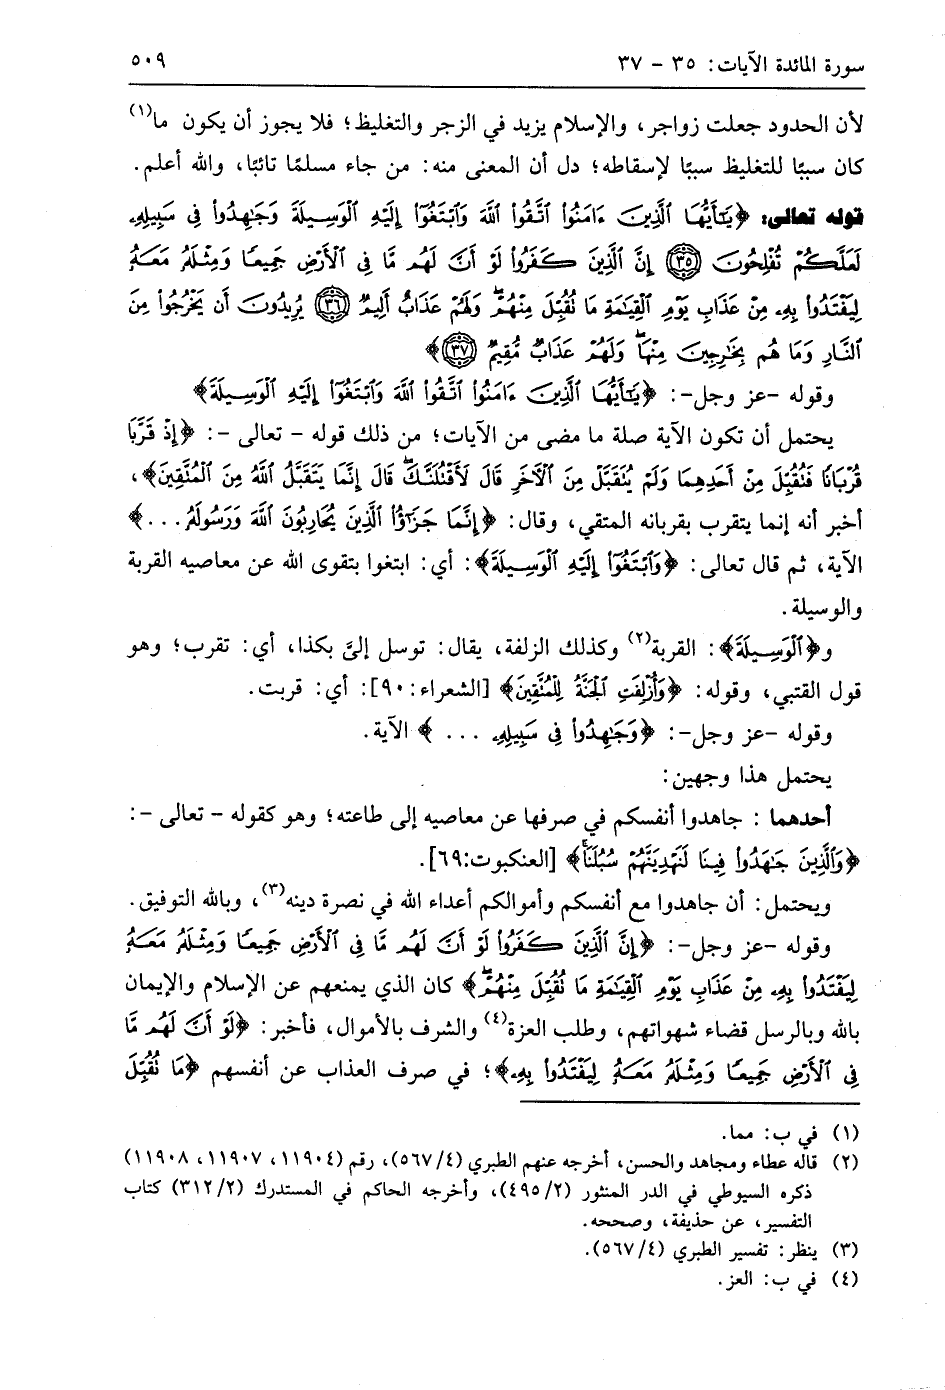 سورة المائدة الآيات: ٣٥ - ٣٧ ٥٠٩
لأن الحدود جعلت زواجر، والإسلام يزيد في الزجر والتغليظ؛ فلا يجوز أن يكون ما(١)
كان سببًا للتغليظ سببًا لإسقاطه؛ دل أن المعنى منه: من جاء مسلمًا تائبًا، والله أعلم.
قوله تعالى: ﴿يَٰٓأَيُّهَا ٱلَّذِينَ ءَامَنُوا۟ ٱتَّقُوا۟ ٱللَّهَ وَٱبْتَغُوٓا۟ إِلَيْهِ ٱلْوَسِيلَةَ وَجَٰهِدُوا۟ فِى سَبِيلِهِۦ
لَعَلَّكُمْ تُفْلِحُونَ ٣٥ إِنَّ ٱلَّذِينَ كَفَرُوا۟ لَوْ أَنَّ لَهُم مَّا فِى ٱلْأَرْضِ جَمِيعًا وَمِثْلَهُۥ مَعَهُۥ
لِيَفْتَدُوا۟ بِهِۦ مِنْ عَذَابِ يَوْمِ ٱلْقِيَٰمَةِ مَا تُقُبِّلَ مِنْهُمْ ۖ وَلَهُمْ عَذَابٌ أَلِيمٌ ٣٦ يُرِيدُونَ أَن يَخْرُجُوا۟ مِنَ
ٱلنَّارِ وَمَا هُم بِخَٰرِجِينَ مِنْهَا ۖ وَلَهُمْ عَذَابٌ مُّقِيمٌ ٣٧﴾
وقوله -عز وجل-: ﴿يَٰٓأَيُّهَا ٱلَّذِينَ ءَامَنُوا۟ ٱتَّقُوا۟ ٱللَّهَ وَٱبْتَغُوٓا۟ إِلَيْهِ ٱلْوَسِيلَةَ﴾
يحتمل أن تكون الآية صلة ما مضى من الآيات؛ من ذلك قوله - تعالى -: ﴿إِذْ قَرَّبَا
قُرْبَانًا فَتُقُبِّلَ مِنْ أَحَدِهِمَا وَلَمْ يُتَقَبَّلْ مِنَ ٱلْءَاخَرِ قَالَ لَأَقْتُلَنَّكَ ۖ قَالَ إِنَّمَا يَتَقَبَّلُ ٱللَّهُ مِنَ ٱلْمُتَّقِينَ﴾،
أخبر أنه إنما يتقرب بقربانه المتقي، وقال: ﴿إِنَّمَا جَزَٰٓؤُا۟ ٱلَّذِينَ يُحَارِبُونَ ٱللَّهَ وَرَسُولَهُۥ ...﴾
الآية، ثم قال تعالى: ﴿وَٱبْتَغُوٓا۟ إِلَيْهِ ٱلْوَسِيلَةَ﴾: أي: ابتغوا بتقوى الله عن معاصيه القربة
والوسيلة.
و﴿ٱلْوَسِيلَةَ﴾: القربة(٢) وكذلك الزلفة، يقال: توسل إليَّ بكذا، أي: تقرب؛ وهو
قول القتبي، وقوله: ﴿وَأُزْلِفَتِ ٱلْجَنَّةُ لِلْمُتَّقِينَ﴾ [الشعراء: ٩٠]: أي: قربت.
وقوله -عز وجل-: ﴿وَجَٰهِدُوا۟ فِى سَبِيلِهِۦ ...﴾ الآية.
يحتمل هذا وجهين:
أحدهما : جاهدوا أنفسكم في صرفها عن معاصيه إلى طاعته؛ وهو كقوله - تعالى -:
﴿وَٱلَّذِينَ جَٰهَدُوا۟ فِينَا لَنَهْدِيَنَّهُمْ سُبُلَنَا﴾ [العنكبوت:٦٩].
ويحتمل: أن جاهدوا مع أنفسكم وأموالكم أعداء الله في نصرة دينه(٣)، وبالله التوفيق.
وقوله -عز وجل-: ﴿إِنَّ ٱلَّذِينَ كَفَرُوا۟ لَوْ أَنَّ لَهُم مَّا فِى ٱلْأَرْضِ جَمِيعًا وَمِثْلَهُۥ مَعَهُۥ
لِيَفْتَدُوا۟ بِهِۦ مِنْ عَذَابِ يَوْمِ ٱلْقِيَٰمَةِ مَا تُقُبِّلَ مِنْهُمْ ۖ﴾ كان الذي يمنعهم عن الإسلام والإيمان
بالله وبالرسل قضاء شهواتهم، وطلب العزة(٤) والشرف بالأموال، فأخبر: ﴿لَوْ أَنَّ لَهُم مَّا
فِى ٱلْأَرْضِ جَمِيعًا وَمِثْلَهُۥ مَعَهُۥ لِيَفْتَدُوا۟ بِهِۦ﴾؛ في صرف العذاب عن أنفسهم ﴿مَا تُقُبِّلَ
(١) في ب: مما.
(٢) قاله عطاء ومجاهد والحسن، أخرجه عنهم الطبري (٥٦٧/٤)، رقم (١١٩٠٤، ١١٩٠٧، ١١٩٠٨)
ذكره السيوطي في الدر المنثور (٤٩٥/٢)، وأخرجه الحاكم في المستدرك (٣١٢/٢) كتاب
التفسير، عن حذيفة، وصححه.
(٣) ينظر: تفسير الطبري (٥٦٧/٤).
(٤) في ب: العز.